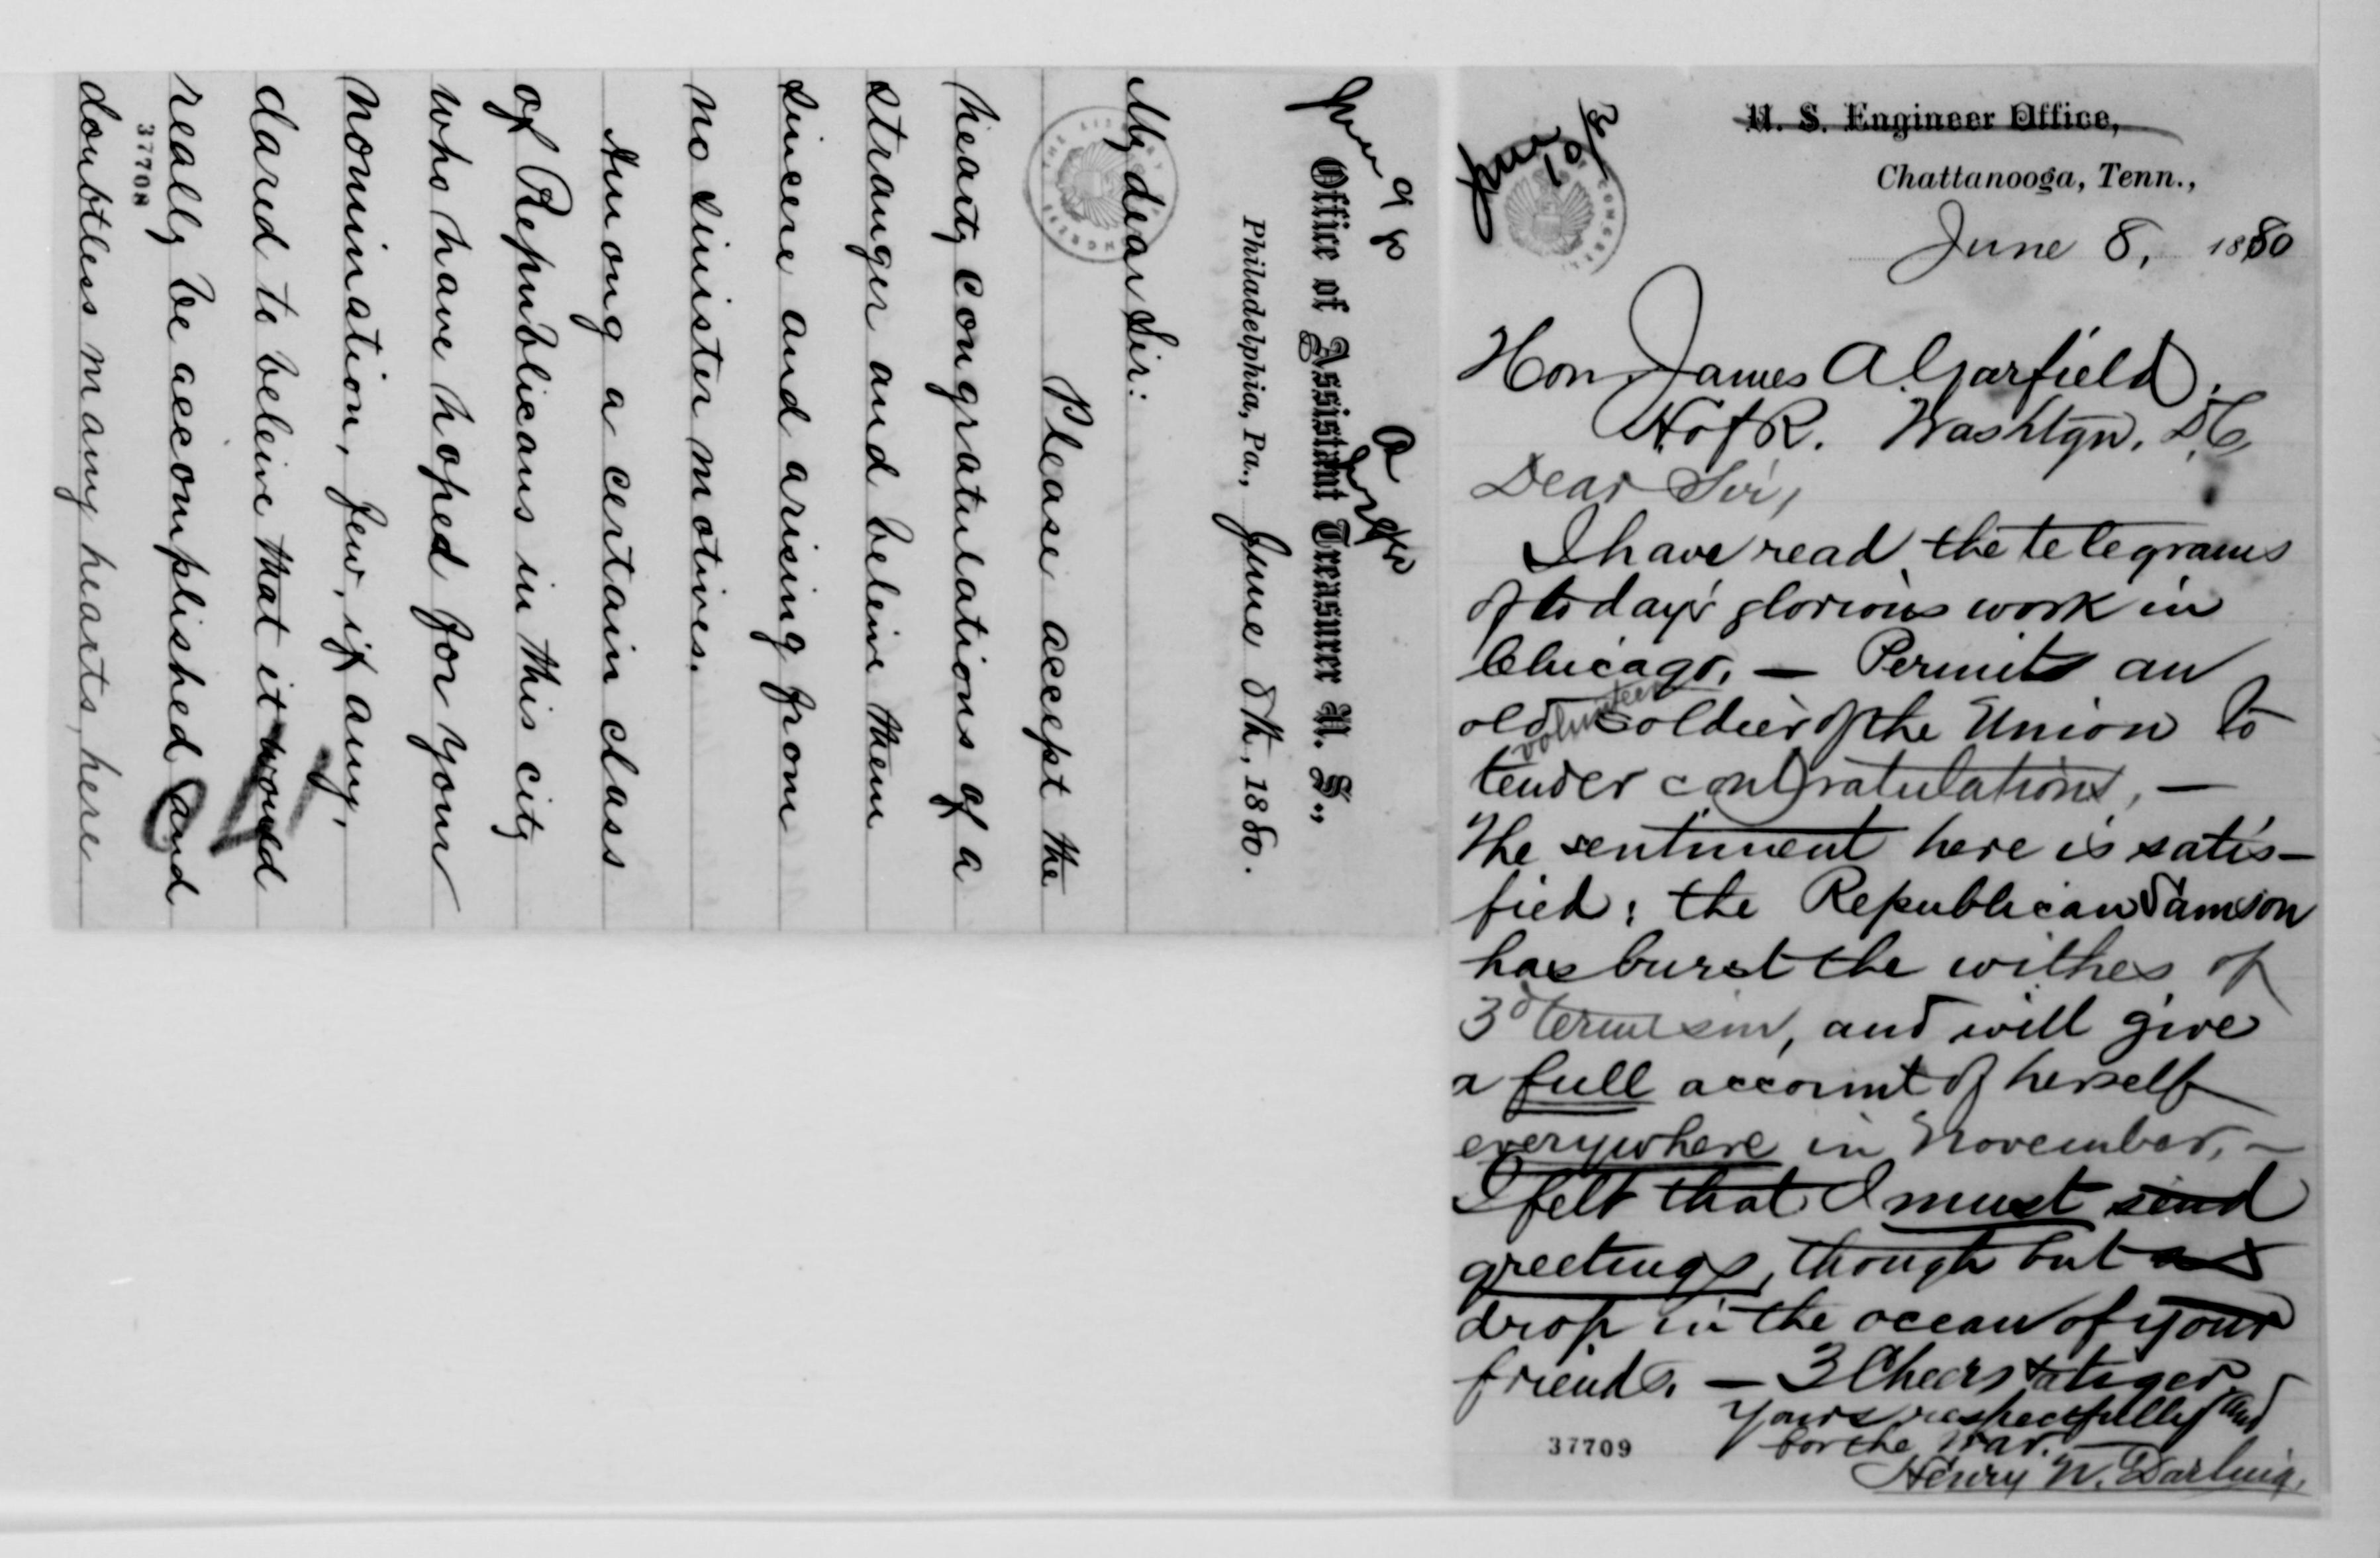 June 9 80
Office of Assistant Treasurer U. S.,
Philadelphia, Pa., June 8th, 1880.
My dear Sir:
Please accept the
hearty congratulations of a
stranger and beleive them
sincere and arising from
no sinister motives.
Among a certain class
of Republicans in this city
who have hoped for your
nomination, few, if any,
dared to beleive that it would
really be accomplished and
doubtless many hearts, here
37708
June 10/80
U. S. Engineer Office,
Chattanooga, Tenn.,
June 8, 1880
Hon James A Garfield,
H of R. Washtgn. D.C.
Dear Sir,
I have read the telegrams
of to day's glorious work in
Chicago. — Permit an
old volunteer soldier of the Union to
tender congratulations, —
The sentiment here is satis-
fied; the Republican Samson
has burst the withes of
3d termism, and will give
a full account of herself
everywhere in November. —
I felt that I must send
greetings, though but a
drop in the ocean of your
friends. — 3 Cheers & a tiger
Yours respectfully and
for the War. —
Henry W. Darling.
37709